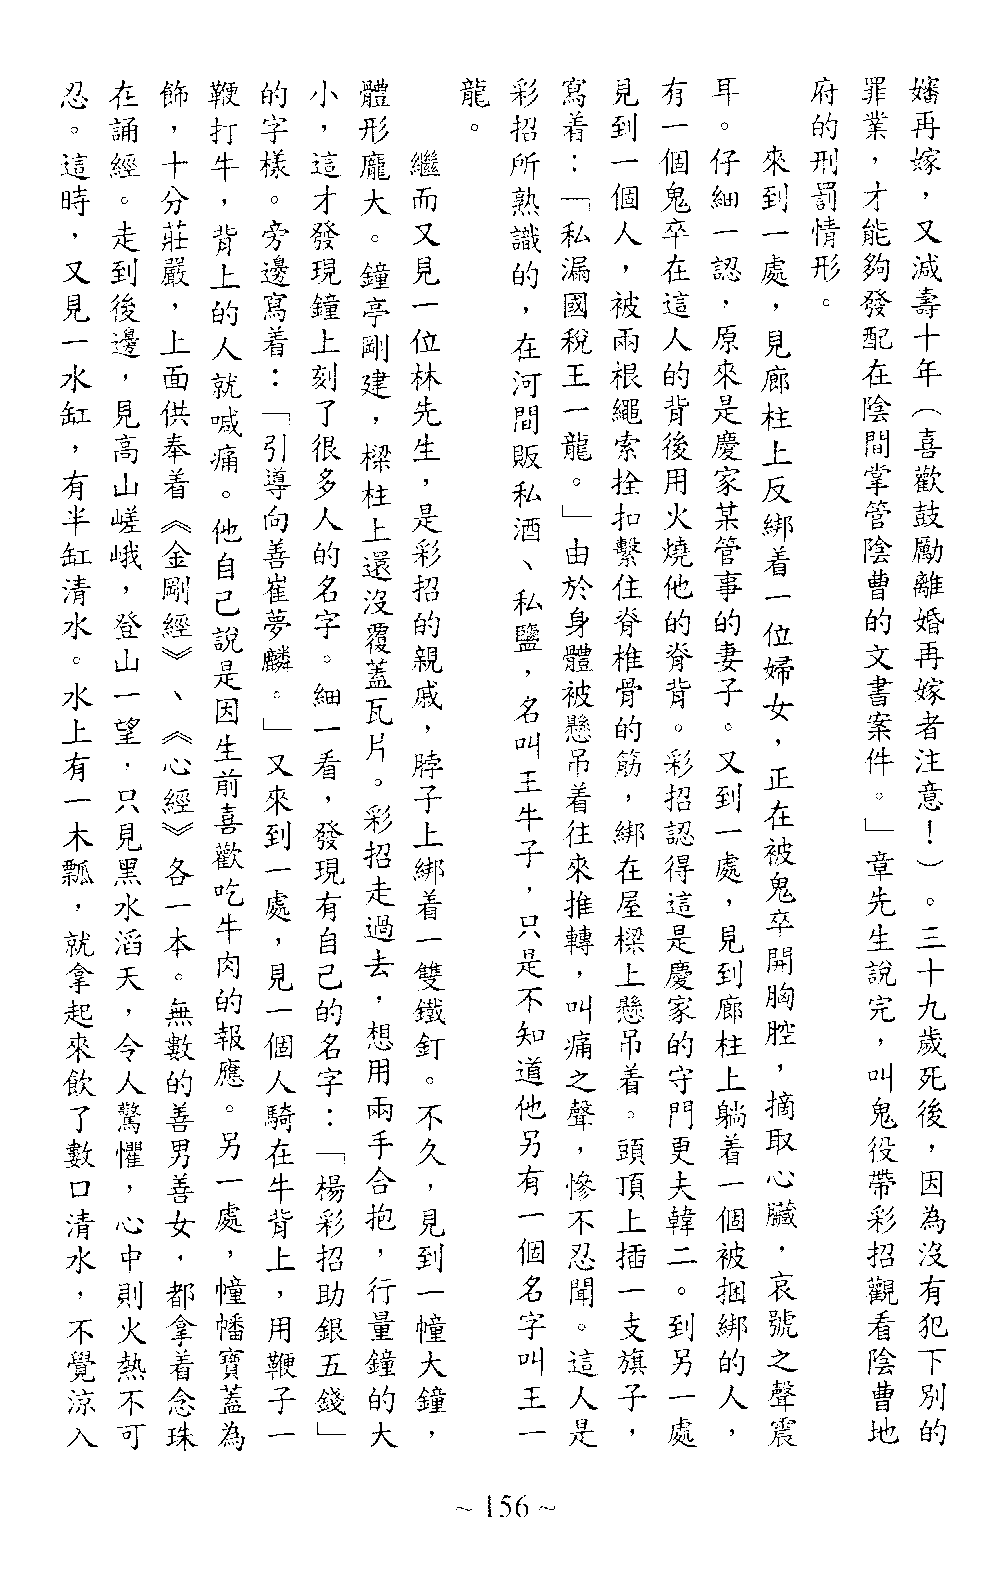 嬸再嫁，又減壽十年（喜歡鼓勵離婚再嫁者注意！）。三十九歲死後，因為沒有犯下別的
罪業，才能夠發配在陰間掌管陰曹的文書案件。」章先生說完，叫鬼役帶彩招觀看陰曹地
府的刑罰情形。
來到一處，見廊柱上反綁着一位婦女，正在被鬼卒開胸腔，摘取心臟，哀號之聲震
耳。仔細一認，原來是慶家某管事的妻子。又到一處，見到廊柱上躺着一個被捆綁的人，
有一個鬼卒在這人的背後用火燒他的脊背。彩招認得這是慶家的守門更夫韓二。到另一處
見到一個人，被兩根繩索拴扣繫住脊椎骨的筋，綁在屋樑上懸吊着。頭頂上插一支旗子，
寫着：「私漏國稅王一龍。」由於身體被懸吊着往來推轉，叫痛之聲，慘不忍聞。這人是
彩招所熟識的，在河間販私酒、私鹽，名叫王牛子，只是不知道他另有一個名字叫王一
龍。
繼而又見一位林先生，是彩招的親戚，脖子上綁着一雙鐵釘。不久，見到一幢大鐘，
體形龐大。鐘亭剛建，樑柱上還沒覆蓋瓦片。彩招走過去，想用兩手合抱，行量鐘的大
小，這才發現鐘上刻了很多人的名字。細一看，發現有自己的名字：「楊彩招助銀五錢」
的字樣。旁邊寫着：「引導向善崔夢麟。」又來到一處，見一個人騎在牛背上，用鞭子一
鞭打牛，背上的人就喊痛。他自己說是因生前喜歡吃牛肉的報應。另一處，幢幡寶蓋為
飾，十分莊嚴，上面供奉着《金剛經》、《心經》各一本。無數的善男善女，都拿着念珠
在誦經。走到後邊，見高山嵯峨，登山一望，只見黑水滔天，令人驚懼，心中則火熱不可
忍。這時，又見一水缸，有半缸清水。水上有一木瓢，就拿起來飲了數口清水，不覺涼入
~ 156 ~